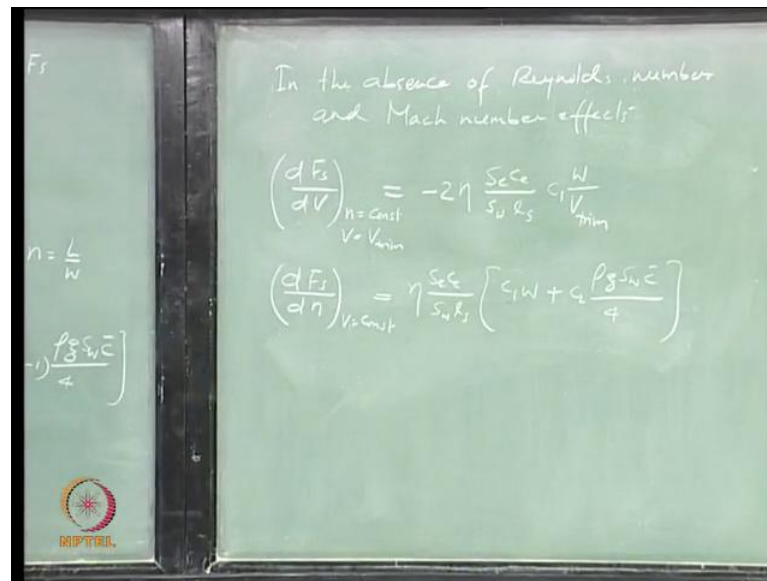 Fs
n = L/W
-1) ρg Sw c̄/4 ]
In the absence of Reynolds number
and Mach number effects
(dFs/dV) n = const V = Vtrim = -2η Se ce/Sw ls c1 W/Vtrim
(dFs/dn) V = const = η Se ce/Sw ls [ c1 W + c2 ρg Sw c̄/4 ]
NPTEL